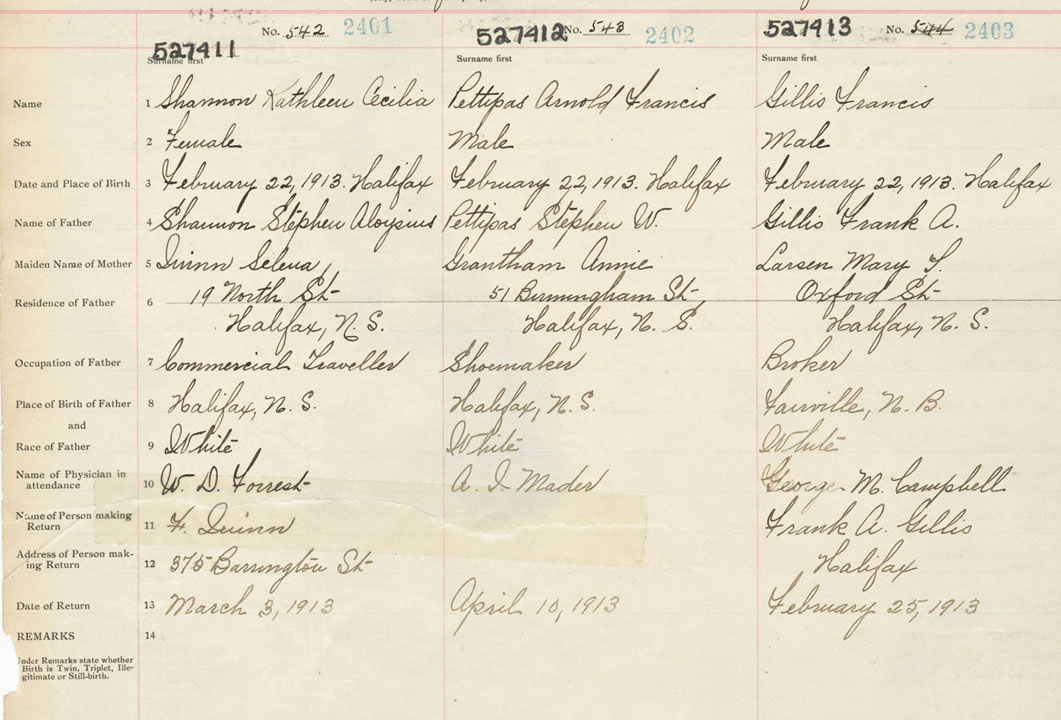 No. 542 2401 No. 543 2402 No. 544 2403
527411 527412 527413
Surname first Surname first Surname first
Name 1 Shannon Kathleen Cecilia Pettipas Arnold Francis Gillis Francis
Sex 2 Female Male Male
Date and Place of Birth 3 February 22, 1913. Halifax February 22, 1913. Halifax February 22, 1913. Halifax
Name of Father 4 Shannon Stephen Aloysius Pettipas Stephen W. Gillis Frank A.
Maiden Name of Mother 5 Quinn Selena Grantham Annie Larsen Mary
Residence of Father 6 19 North St 51 Birmingham St, Oxford St
Halifax, N. S. Halifax, N. S. Halifax, N. S.
Occupation of Father 7 Commercial Traveller Shoemaker Broker
Place of Birth of Father 8 Halifax, N. S. Halifax, N. S. Fairville, N. B.
and
Race of Father 9 White White White
Name of Physician in
attendance 10 W. D. Forrest A. I. Mader George M. Campbell
Name of Person making
Return 11 F. Quinn Frank A. Gillis
Address of Person mak-
ing Return 12 375 Barrington St Halifax
Date of Return 13 March 3, 1913 April 10, 1913 February 25, 1913
REMARKS 14
Under Remarks state whether
Birth is Twin, Triplet, Ille-
gitimate or Still-birth.